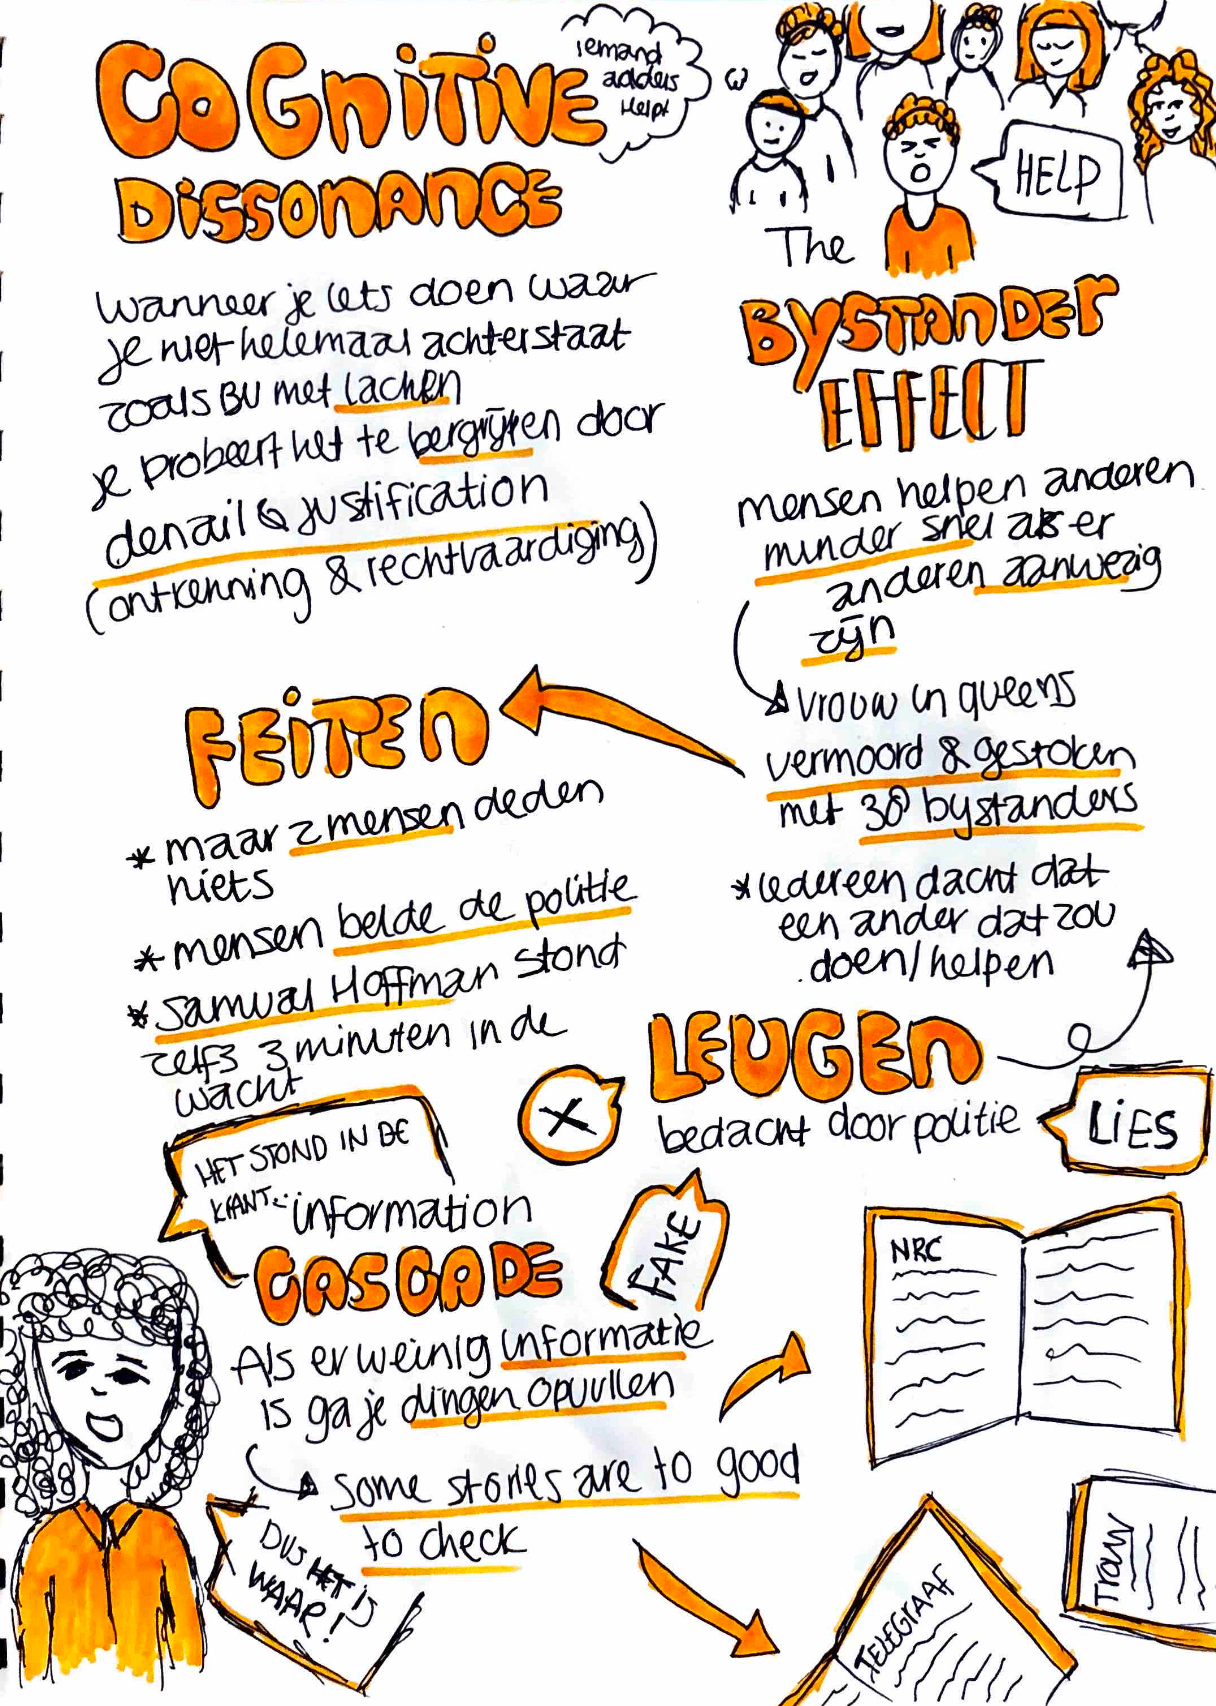 COGNITIVE
DISSONANCE
wanneer je iets doen waar
je niet helemaal achterstaat
zoals BV met lachen
je probeert het te bergrijpen door
denail & justification
(ontkenning & rechtvaardiging)
iemand
anders
Helpt
HELP
The
BYSTANDER
EFFECT
mensen helpen anderen
minder snel als er
anderen aanwezig
zijn
vrouw in queens
vermoord & gestoken
met 38 bystanders
*iedereen dacht dat
een ander dat zou
doen/helpen
FEITEN
* maar 2 mensen deden
niets
* mensen belde de politie
* Samual Hoffman stond
zelfs 3 minuten in de
wacht
LEUGEN
bedacht door politie
X
LIES
HET STOND IN DE
KRANT
information
CASCADE
FAKE
Als er weinig informatie
is ga je dingen opvullen
some stories are to good
to check
DUS HET IS
WAAR!
NRC
TELEGRAAF
Trouw